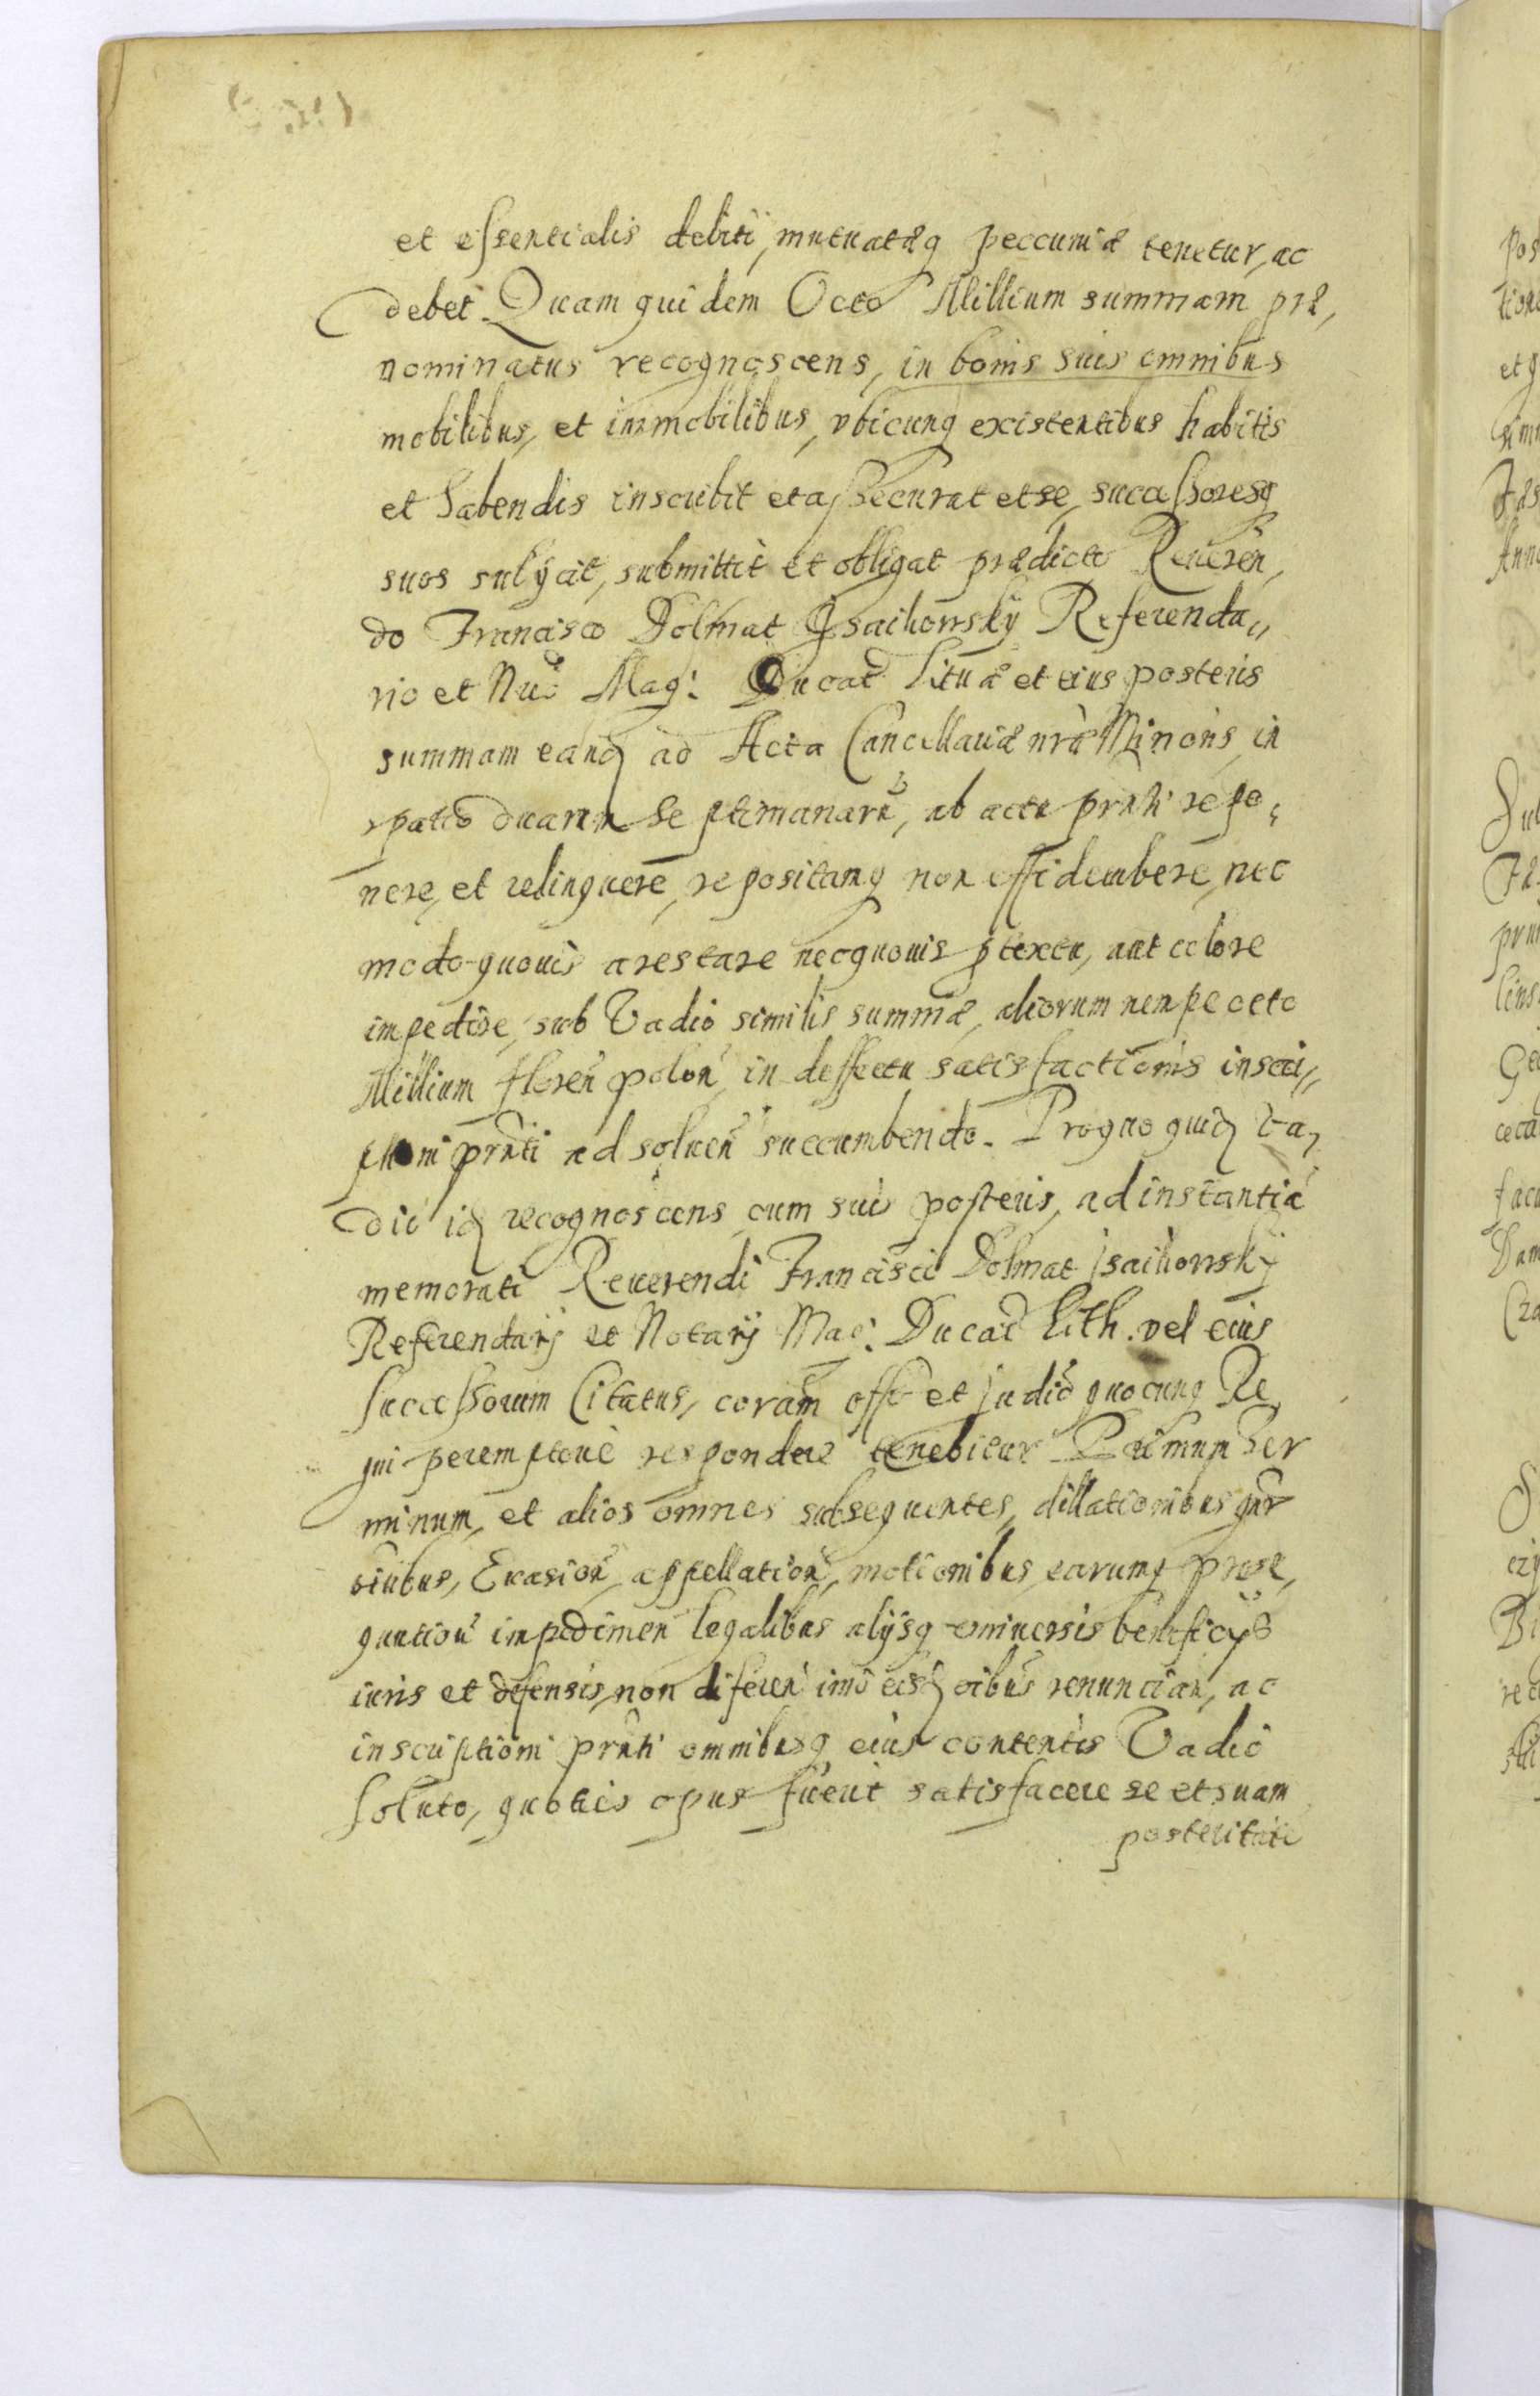 et essentialis debiti, mutuatæq peccuniæ tenetur, ac
debet. Quam quidem Octo Millium summam præ,
nominatus recognoscens, in bonis suis omnibus
mobilibus, et immobilibus, vbicunq existentibus habitis
et habendis inscribit et assecurat et se, successoresq
suos subijcit, submittit et obligat prædicto Reueren,
do Francisco Dolmat Isaikowsky Referenda,,
rio et Mag: Ducat Lituæ et eius posteris
summam eand ad Acta Cancellariæ nræ Minoris, in
spatio duarum Septimanarũ, ab actu prnti repo,
nere, et relinquere, repositamq non nec
modo quouis arestare nec quouis ptextu, aut colore
impedire, sub Vadio similis summæ, aliorum nempe octo
Millium floren polon, in deffectu satisfactionis inscri,,
ptioni prnti ad soluen succumbendo. Pro quo quid Va,
dio id recognoscens, cum suis posteris, ad instantiã
memorati Reuerendi Francisci Dolmat Isaikowsky
Referendarij et Notarij Mag: Ducat Lith. vel eius
Successorum Citatus, coram offo et Judio quocunq Re,
gni peremptoriè respondere tenebitur Primum Ter
minum, et alios omnes subsequentes, dillationibus
Euasion, appellation, motionibus, earumq prose,
qution impedimen legalibus alijsq vniuersis beneficijs
iuris et defensis, non diferen imò eisd oibus renuncian, ac
inscriptioni prnti omnibusq eius contentis Vadio
soluto, quoties opus fuerit satisfacere se et suam
posteritatẽ